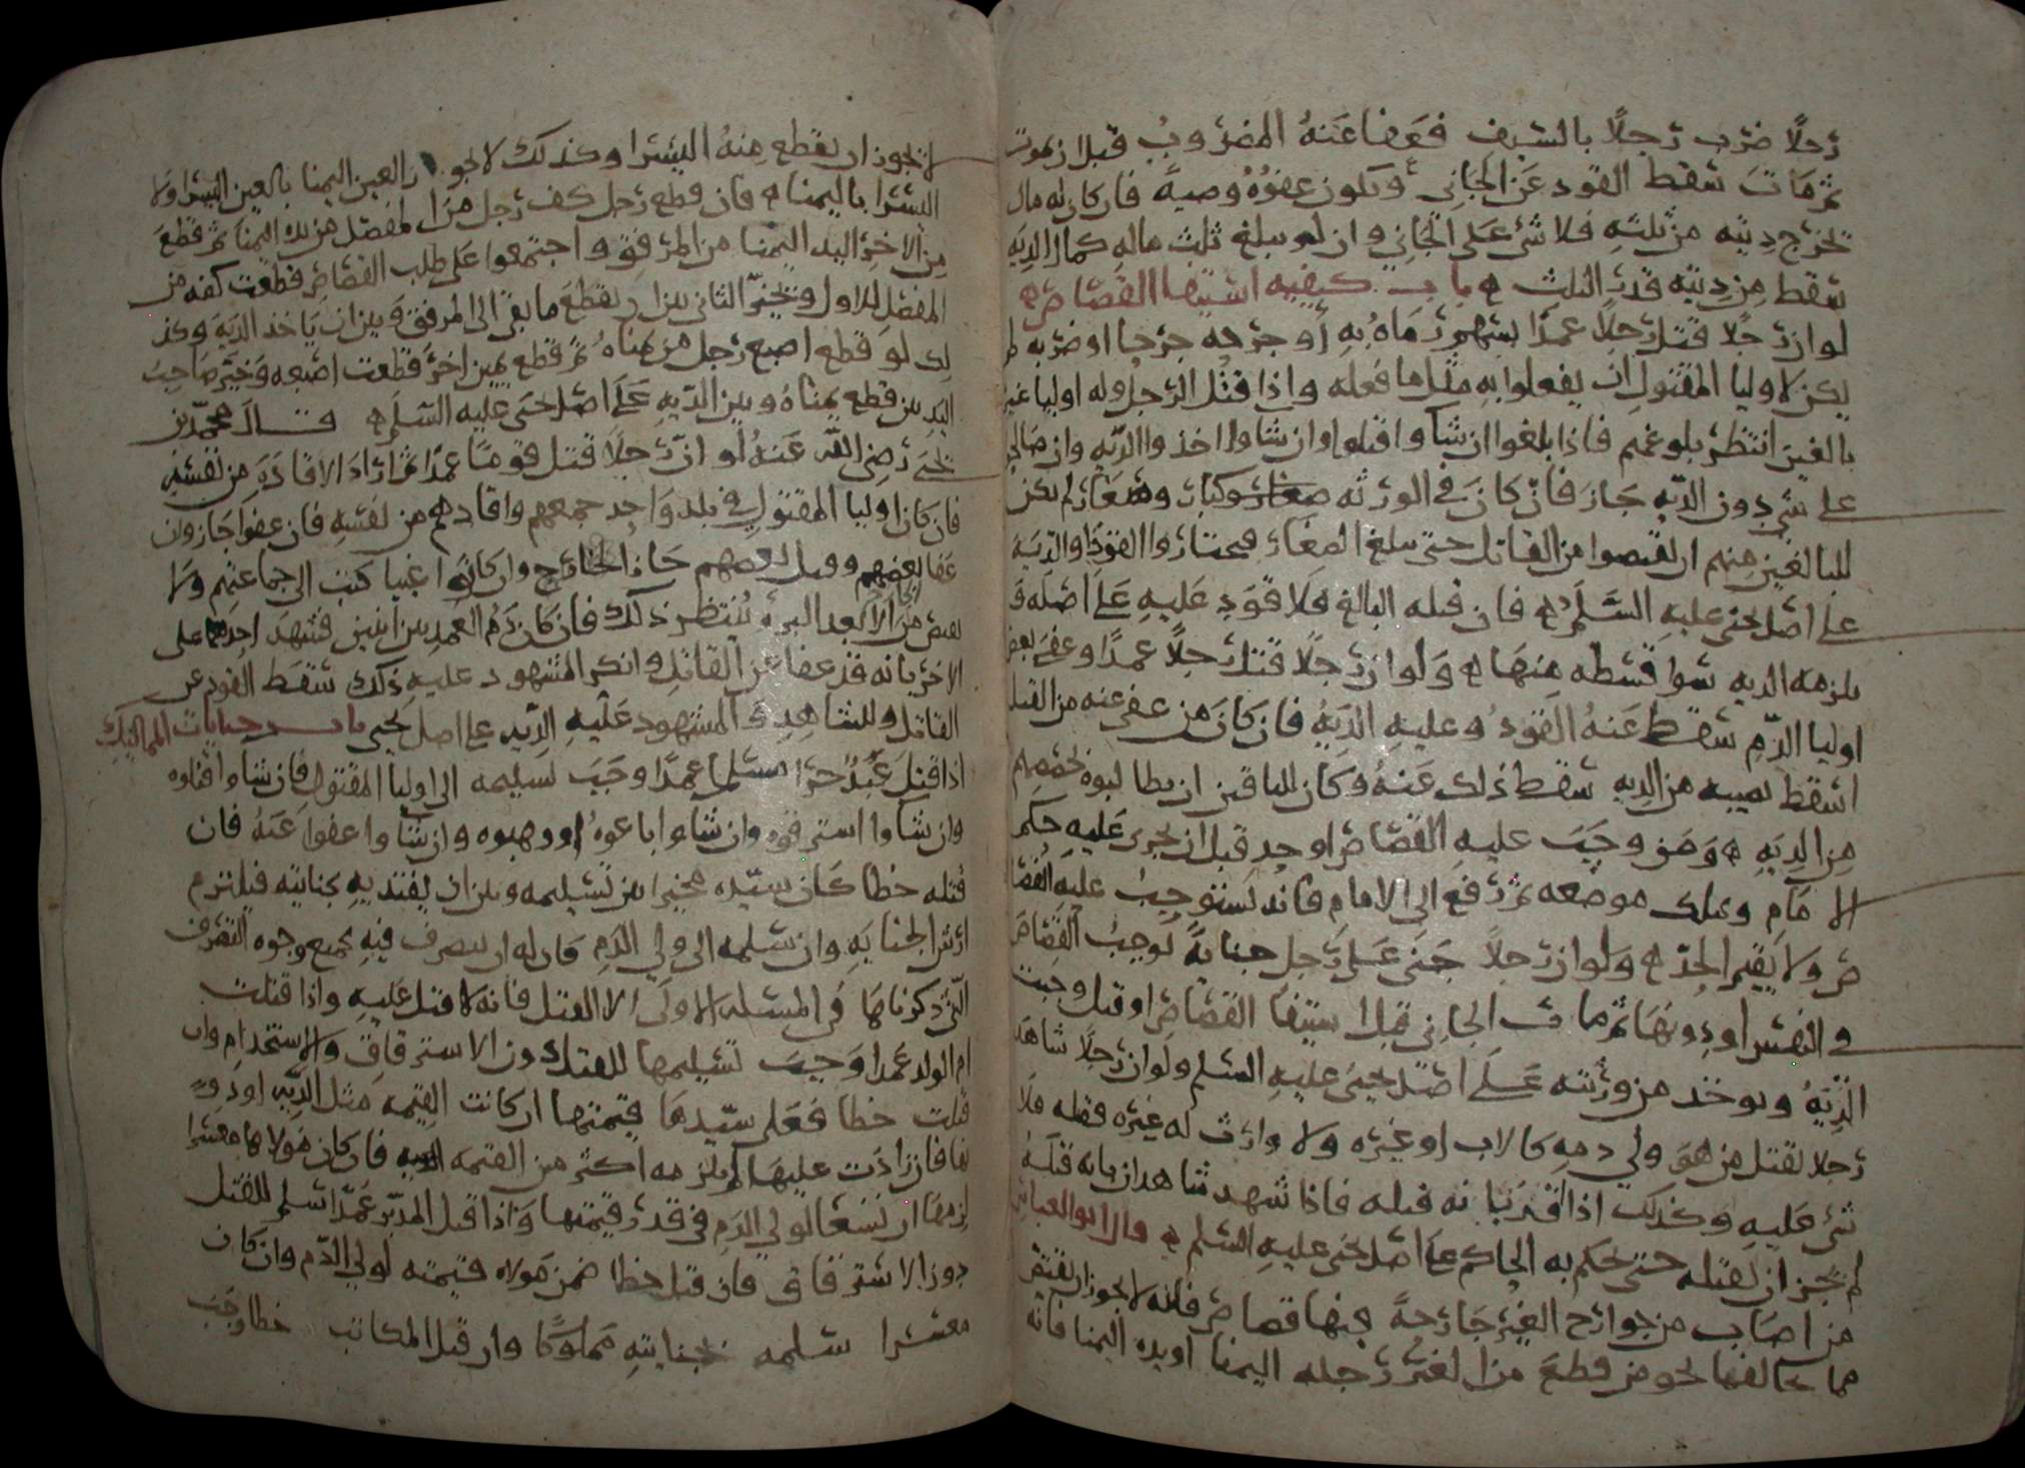 رجلًا ضرب رجلًا بالسيف فعفا عنهُ المضروبُ قبل ان يموت
ثم مات سقط القود عن الجاني وتكون عفوُهُ وصيةً فان كان له مال
تخرج ديته من ثلثه فلا شي على الجاني وان لم يبلغ ثلث ماله كمال الديه
سقط من ديته قدر الثلث ه باب كيفيه استيفا القصاص ه
لو ان رجلا قتل رجلًا عمدًا بسهم رماهُ به أو جرحه جرحا او ضربه لم
يكن لاوليا المقتول ان يفعلوا به مثل ما فعله واذا قتل الرجل وله اوليا غير
بالغين انتظر بلوغهم فاذا بلغوا ان شاوا قتلوا وان شاوا اخذوا الديه وان صالحو
على شي دون الديه جاز فان كان في الورثه صغار وكبار لم يكن
للبالغين منهم ان يقتصوا من القاتل حتى يبلغ الصغار فيختاروا القود او الدية
على اصل يحيى عليه السلم ه فان قتله البالغ فلا قود عليه على اصله و
يلزمه الديه سوا قسطه منها ه ولو ان رجلًا قتل رجلًا عمدًا وعفى بعض
اوليا الدم سقط عنهُ القودُ وعليه الديهُ فان كان من عفى عنه من القتل
اسقط نصيبه من الديه سقط ذلك عنهُ وكان للباقين ان يطالبوه بحصصهم
من الديه ه ومن وجب عليه القصاص او حد قبل ان يجرى عليه حكم
الامام وملك موضعه ثم رفع الى الامام فانه يستوجب عليه القصا
ص ولا يقيم الحد ه ولو ان رجلًا جنى على رجل جنايةً توجب القصاص
في النفس او دونها ثم مات الجاني قبل استيفا القصاص او قتل وجبت
الديهُ ويوخذ من ورثته على اصل يحيى عليه السلم ولو ان رجلًا شاهد
رجلا يقتل من هو ولي دمه كالاب او غيره ولا وارث له غيره فقتله فلا
شي عليه وكذلك اذا اقر بانه قتله فاذا شهد شاهدان بانه قتله
لم يجز ان يقتله حتى يحكم به الحاكم على اصل يحيى عليه السلم ه قال ابو العباس
من اصاب من جوارح الغير جارحةً فيها قصاص فانه لا يجوز ان يقتص
مما يخالفها نحو من قطع من الغير رجله اليمنا او يده اليمنا فانه
لا يجوز ان يقطع منهُ اليسرا وكذلك لا يجوز العين اليمنا بالعين اليسرا ولا
اليسرا باليمنا ه فان قطع رجل كف رجل من المفصل من يده اليمنا ثم قطع
من الاخر اليد اليمنا من المرفق واجتمعوا على طلب القصاص قطعت كفه من
المفصل للاول ويخير الثاني بين ان يقطع ما بقي الى المرفق وبين ان ياخذ الدية وكذ
لك لو قطع اصبع رجل من يمناهُ ثم قطع يمين اخر قطعت اصبعه وخير صاحب
اليد بين قطع يمناهُ وبين الديه على اصل يحيى عليه السلم ه قال محمد بن
يحيى رضي الله عنهُ لو ان رجلًا قتل قومًا عمدًا ثم اراد الاقادة من نفسه
فان كان اوليا المقتول في بلد واحد جمعهم واقادهم من نفسه فان عفوا جاز وان
عفا بعضهم وقبل بعضهم جاز الخارج وان كانوا غيبا كتب الى جماعتهم ولا
يقتص من الا بعد البرء ينتظر ذلك فان كان دم العمد بين اثنين فشهد احدهما على
الاخر بانه قد عفا عن القاتل وانكر المشهود عليه ذلك سقط القود عن
القاتل وللشاهد و المشهود عليه الديه على اصل يحيى باب جنايات المماليك
اذا قتل عبدٌ حرًا مسلما عمدًا وجب تسليمه الى اوليا المقتول فان شاوا قتلوه
وان شاوا استرقوه وان شاوا باعوهُ او وهبوه وان شاوا عفوا عنهُ فان
قتله خطا كان سيده مخيرا بين تسليمه وبين ان يفتديه بجنايته فيلتزم
ارش الجنايه وان سلمه الى ولي الدم كان له ان يتصرف فيه بجميع وجوه التصرف
التي ذكرناها في المسئله الاولى الا القتل فانه لا قتل عليه واذا قتلت
ام الولد عمدا وجب تسليمها للقتل دون الاسترقاق والاستخدام وان
قتلت خطا فعلى سيدها قيمتها ان كانت القيمه مثل الديه او دو
نها فان زادت عليها لم يلزمه اكثر من القيمه الديه فان كان مولاها معسرا
لزمها ان تسعا لولي الدم في قدر قيمتها واذا قتل المدبر عمدًا سلم للقتل
دون الاسترقاق فان قتل خطا ضمن مولاه قيمته لولي الدم وان كان
معسرا سلمه بجنايته مملوكًا وان قتل المكاتب خطا وجب